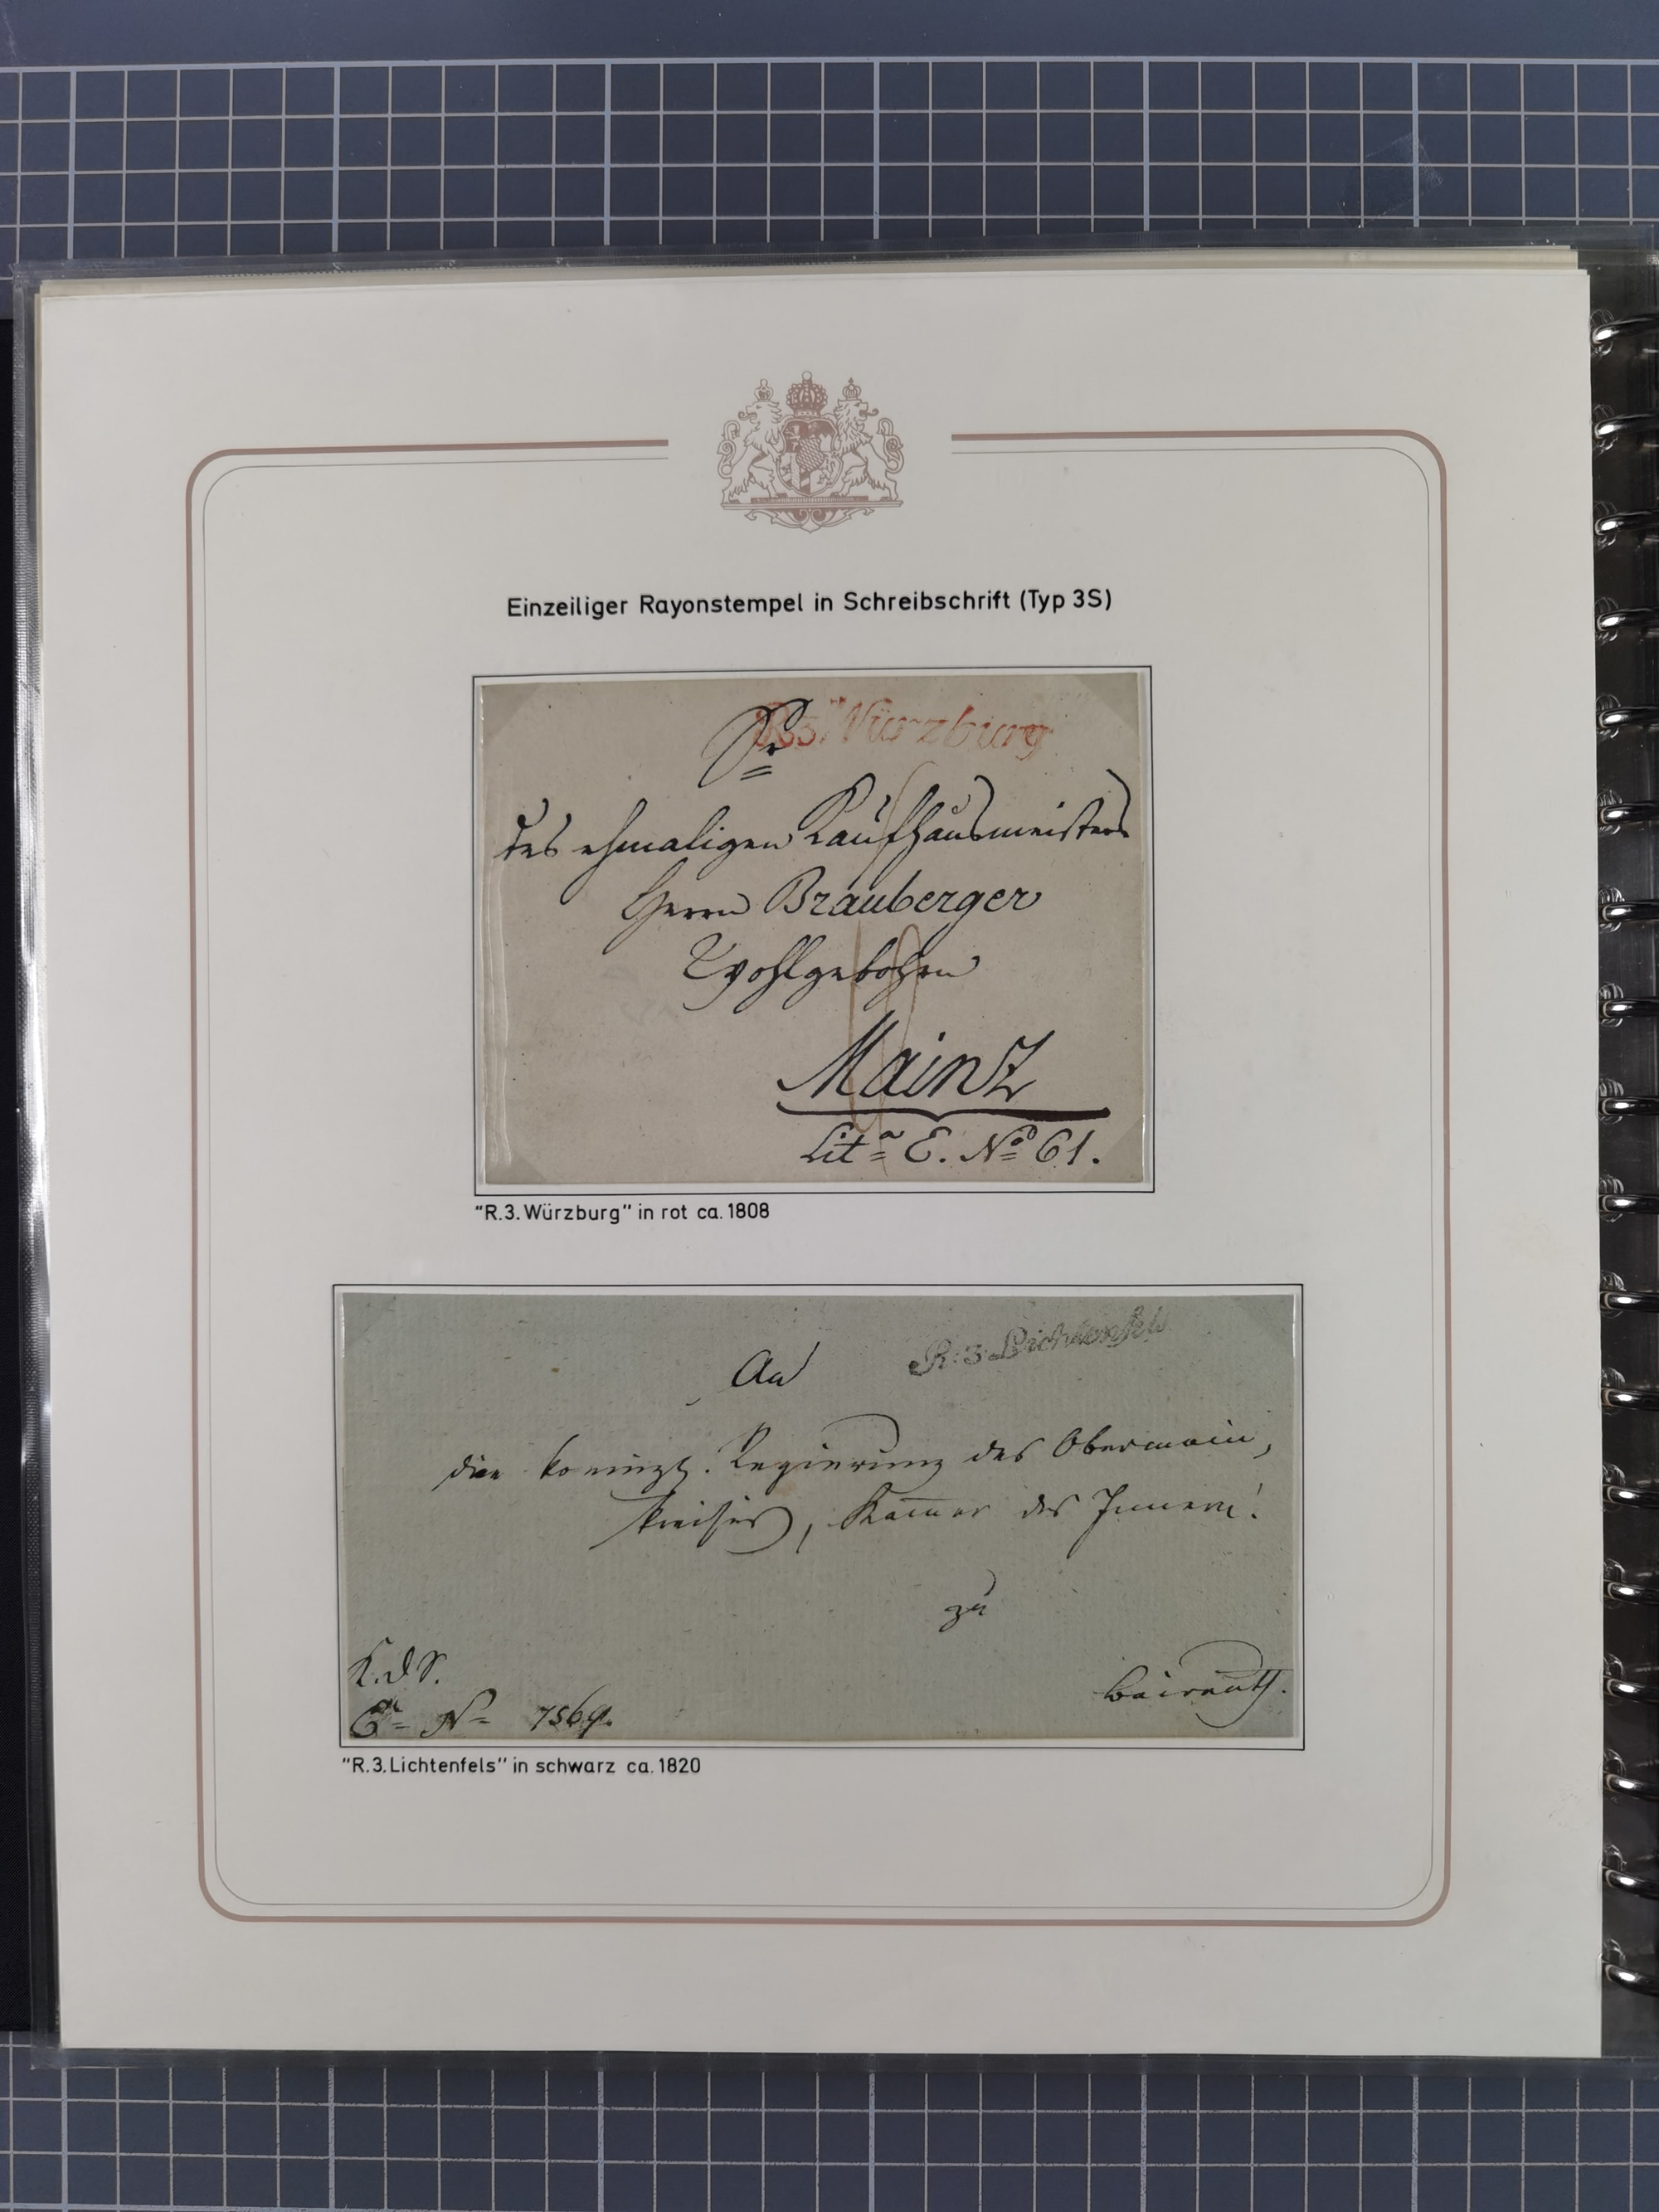 Einzeiliger Rayonstempel in Schreibschrift (Typ 3S)
R.3. Würzburg
Sr
des ehmaligen Kaufhausmeisters
Herrn Brauberger
Wohlgebohren
Mainz
Lit.a E. No 61.
"R.3.Würzburg" in rot ca. 1808
R. 3. Lichtenfels
An
die koenigl. Regierung des Obermain,
kreises, Kam̅er des Innern!
zu
Baireuth.
K.d.I.
E. No 7569.
"R.3.Lichtenfels" in schwarz ca. 1820